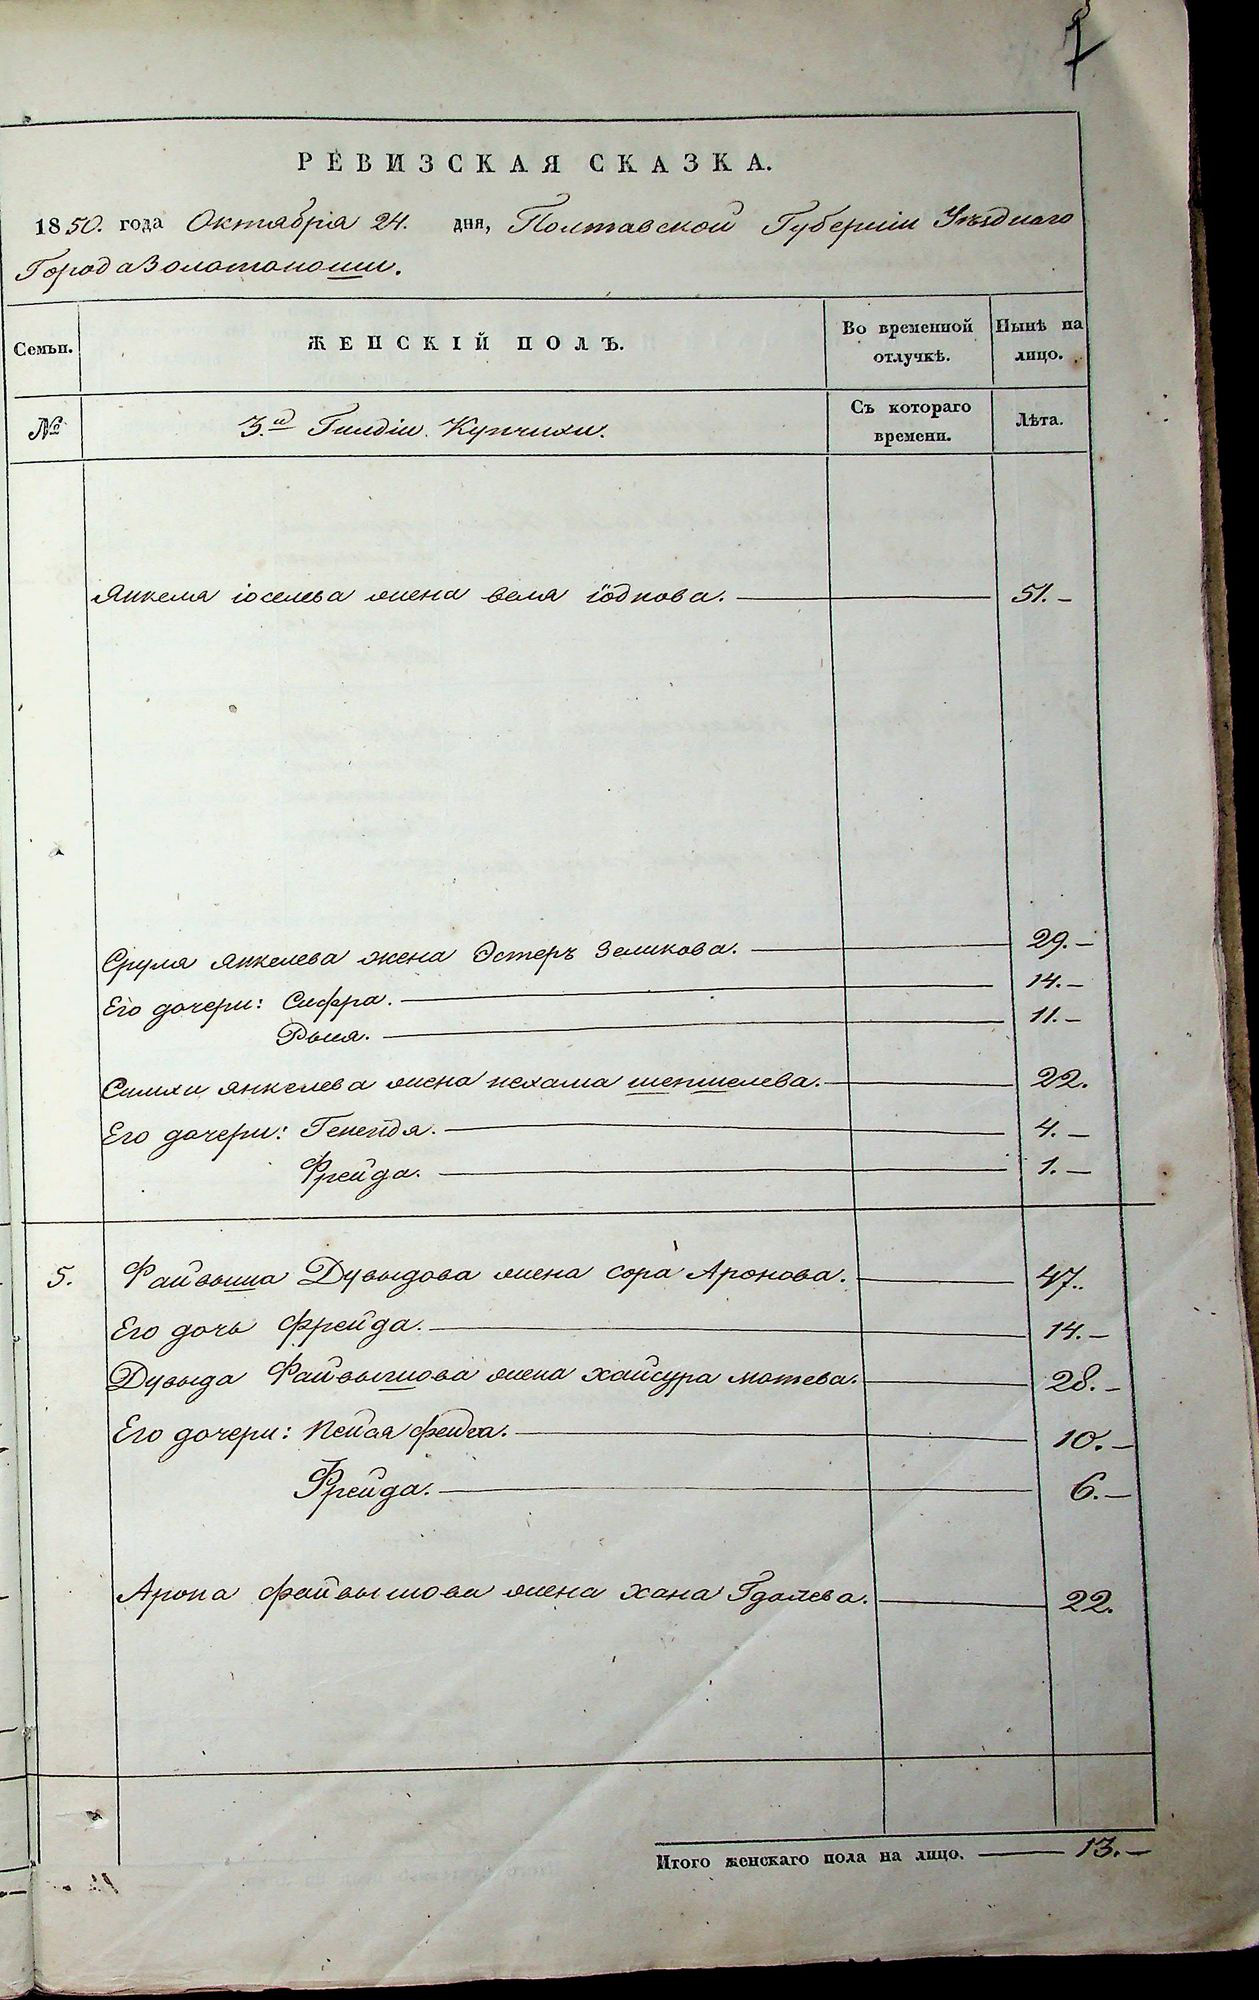 7
РЕВИЗСКАЯ СКАЗКА.
1850. года Октября 24. дня, Полтавской Губерніи Уѣзднаго
Города Золотоноши.
Семьи. ЖЕНСКІЙ ПОЛЪ. Во временной отлучкѣ. Нынѣ на лицо.
№ 3.й Гильдіи Купчихи. Съ котораго времени. Лѣта.
Янкеля іоселева жена веля іодкова. 51.–
Сруля янкелева жена Эстеръ Зеликова. 29.–
Его дочери: Сифра. 14.–
Рыся. 11.–
Симхи янкелева жена нехама шепшелева. 22.
Его дочери: Генендя. 4.–
Фрейда. 1.–
5. Файвыша Дувыдова жена сора Аронова. 47..
Его дочь фрейда. 14.–
Дувыда Файвышова жена хайсура мотева. 28.–
Его дочери: фейга. 10.–
Фрейда. 6.–
Арона файвышова жена хана Гдалева. 22.
Итого женскаго пола на лицо. 13.–